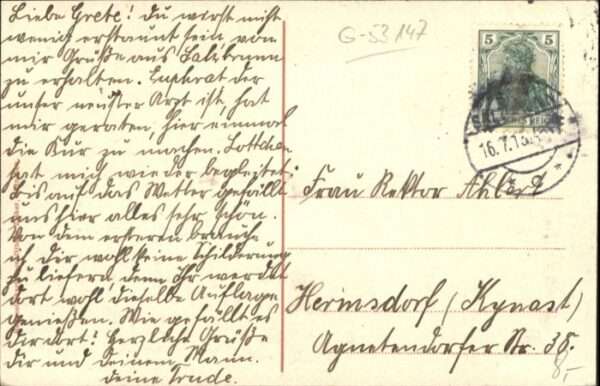 Liebe Grete! Du wirst nicht
wenig erstaunt sein, von
mir Grüße aus Salzbrunn
zu erhalten. Luphrat der
unser neuster Arzt ist, hat
mir geraten, hier einmal
die Kur zu machen. Lottchen
hat mich wieder begleitet.
Bis auf das Wetter gefällt
uns hier alles sehr schön.
Von dem ersteren brauche
ich dir wohl keine Schilderung
zu liefern denn Ihr werdet
dort wohl dieselbe Auflage
genießen. Wie gefällt es
dir dort? Herzliche Grüße
dir und deinem Mann.
deine Trude.
G-53 147
5 5
16.7.13
Frau Rektor Ahlert
Hermsdorf (Kynast)
Agnetendorfer Str. 38.